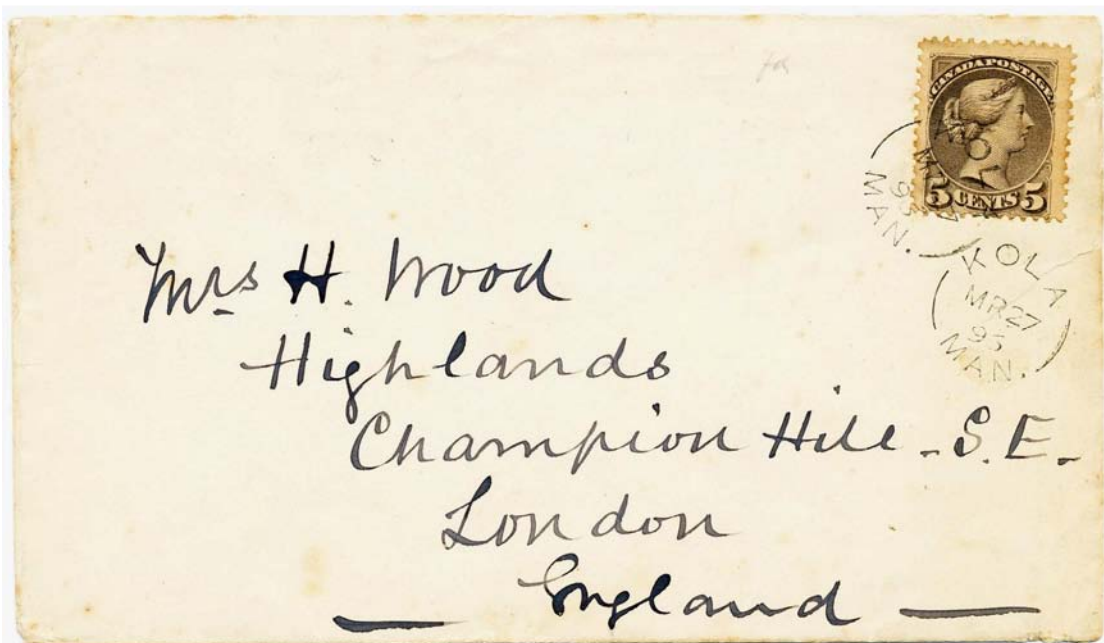 CANADA POSTAGE
5 CENTS 5
MAN.
KOLA
MR 27
95
MAN.
Mrs H. Wood
Highlands
Champion Hill - S.E.
London
England